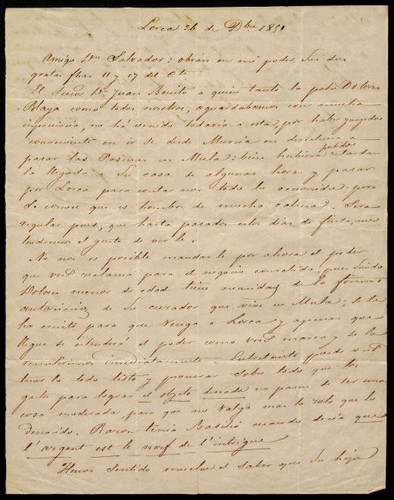 Lorca 26 de Dbre 1851
Amigo Dn Salvador: obran en mi poder sus dos
gratas fhas 11 y 17 del Cte.
El Señor Dn Juan Benito a quien tanto la pobre Dolores
Blaya como todos nosotros, aguardabamos con mucha
impaciencia, no há venido todavia a esta, por haber
en ir se desde Murcia en
pasar las Pascuas en Mula: bien hubiera podido retardar
la llegada a su casa de algunas horas y pasar
por Lorca para contar nos todo lo ocurrido, pero
se conoce que es hombre de mucha calma. Sera
regular pues, que hasta pasados estos dias de fiesta, no
tendremos el gusto de ver le.
No nos es posible mandar le por ahora el poder
que vmd reclama para el negocio consabido, pues siendo
Dolores menor de edad tiene necesidad de la forma
autorizacion de su curador que vive en Mula: se le
ha escrito para que venga a Lorca y apenas que
llegue se estenderá el poder como vmd marca y se lo
remitiremos inmediatamente: Entretanto puede vmd
tener lo todo listo y procurar sobre todo que los
gastos para lograr el objeto deseado no pasen de ser una
cosa moderada, para que no valga mas el roto que lo
descosido. Razon tenia Basilio cuando decia que
l'argent est le nerf de l'intrigue
Hemos sentido mucho el saber que su hija